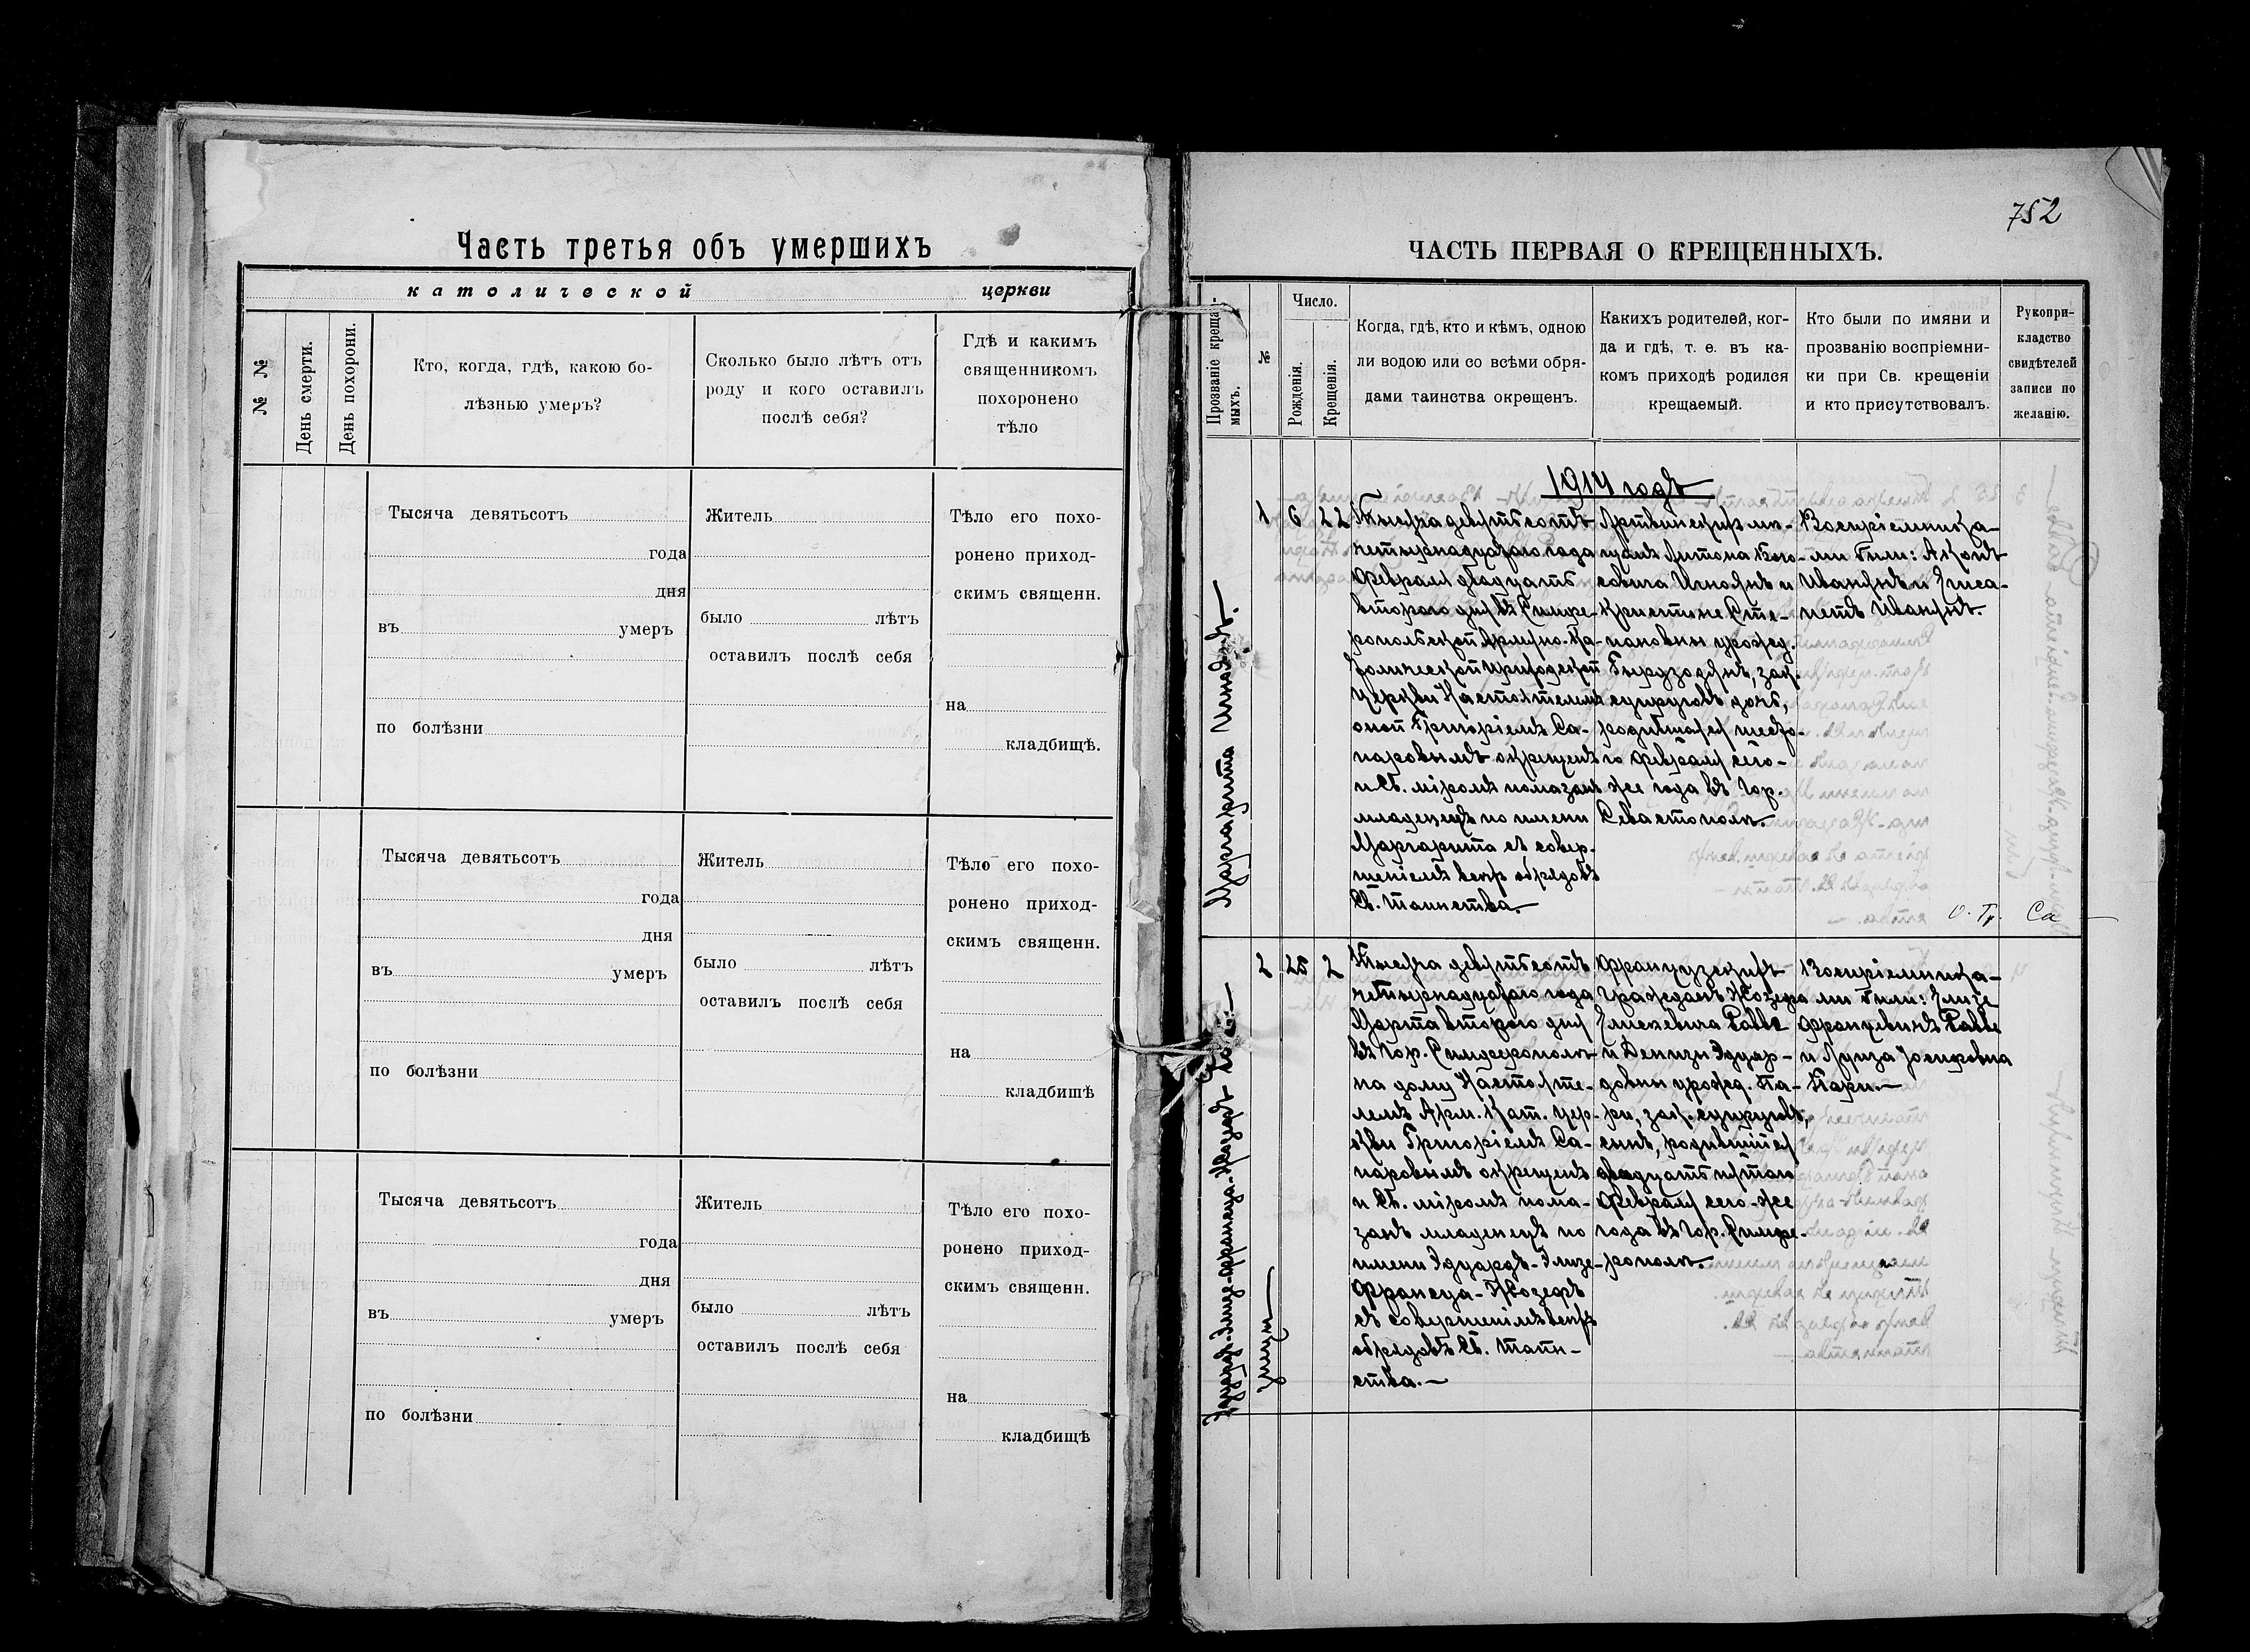 Часть третья объ умершихъ
католической церкви
№ №
День смерти.
День похорони.
Кто, когда, гдѣ, какою бо-
лѣзнью умеръ?
Сколько было лѣтъ отъ
роду и кого оставилъ
послѣ себя?
Гдѣ и какимъ
священникомъ
похоронено
тѣло
Тысяча девятьсотъ
года
дня
въ умеръ
по болѣзни
Житель
было лѣтъ
оставилъ послѣ себя
Тѣло его похо-
ронено приход-
скимъ священн.
на
кладбищѣ.
Тысяча девятьсотъ
года
дня
въ умеръ
по болѣзни
Житель
было лѣтъ
оставилъ послѣ себя
Тѣло его похо-
ронено приход-
скимъ священн.
на
кладбишѣ
Тысяча девятьсотъ
года
дня
въ умеръ
по болѣзни
Житель
было лѣтъ
оставилъ послѣ себя
Тѣло его похо-
ронено приход-
скимъ священн.
на
кладбищѣ
752
ЧАСТЬ ПЕРВАЯ О КРЕЩЕННЫХЪ.
Прозваніе крещае-
мыхъ.
№
Число.
Рожденія.
Крещенія.
Когда, гдѣ, кто и кѣмъ, одною
ли водою или со всѣми обря-
дами таинства окрещенъ.
Какихъ родителей, ког-
да и гдѣ, т. е. въ ка-
комъ приходѣ родился
крещаемый.
Кто были по имяни и
прозванію воспріемни-
ки при Св. крещеніи
и кто присутствовалъ.
Рукопри-
кладство
свидѣтелей
записи по
желанію.
1914 годъ
Маргарита
1 6 22
Тысяча девятьсотъ
четырнадцатаго года
Февраля двадцать
второго дня въ Симфе-
ропольской Армяно-Ка-
толической приходской
Церкви Настоятелемъ
оной Григоріемъ Са-
паровымъ окрещенъ
и Св. міромъ помазанъ
младенецъ по имени
Маргарита съ совер-
шеніемъ всѣхъ обрядовъ
Св. Таинства.
Артвинскихъ мѣ-
щанъ Антона
и
Кристине Сте-
пановны урожд.
зак.
супруговъ дочь,
родившаяся шесто-
го февраля сего-
же года въ Гор.
Севастополѣ.
Воспріемника-
ми были: Акопъ
Иванянъ и Елиса-
ветъ Иванянъ.
О. Гр. Са
Эдуардъ-Элизе-Франсуа-Жозефъ
умеръ
2 25 2
Тысяча девятьсотъ
четырнадцатаго года
Марта второго дня
въ Гор. Симферополѣ
на дому Настояте-
лемъ Арм. Кат. Цер-
кви Григоріемъ Са-
паровымъ окрещенъ
и Св. міромъ пома-
занъ младенецъ по
имени Эдуардъ-Элизе-
Франсуа-Жозефъ
съ совершеніемъ всѣхъ
обрядовъ Св. Таин-
ства.
Французскихъ
Гражданъ Жозефа
Елисеевича Равве
и Денизы Эдуар-
довны урожд. Па-
ри, зак. супруговъ,
сынъ, родившійся
двадцать пятаго
Февраля сего-же
года въ Гор. Симфе-
рополѣ.
Воспріемника-
ми были: Елизе
Францевичъ Равве
и Луиза Іосифовна
Пари.